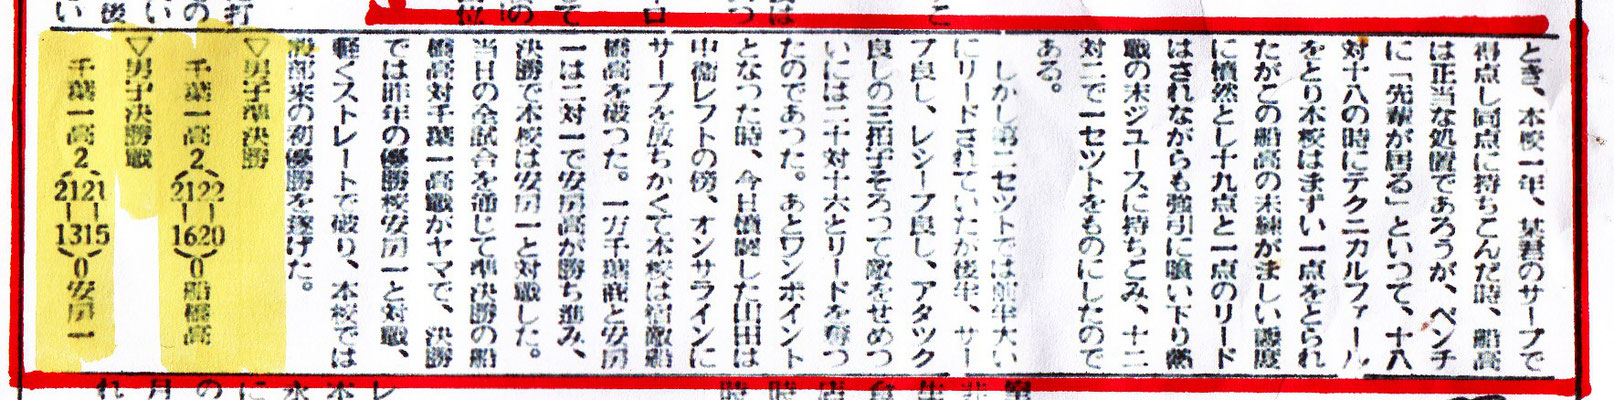 とき、本校一年、某君のサーブで
得点し同点に持ちこんだ時、船高
は正当な処置であろうが、ベンチ
に「先輩が居る」といつて、十八
対十八の時にテクニカルファール
をとり本校はまずい一点をとられ
たがこの船高の未練がましい態度
に憤然とし十九点と一点のリード
はされながらも強引に喰い下り熱
戦の末ジユースに持ちこみ、十二
対二で一セツトをものにしたので
ある。
しかし第二セツトでは前半大い
にリードされていたが後半、サー
ブ良し、レシーブ良し、アタツク
良しの三拍子そろつて敵をせめつ
いには二十対十六とリードを奪つ
たのであつた。あとワンポイント
となつた時、今日憤闘した山田は
中衛レフトの傍、オンサラインに
サーブを放ちかくて本校は宿敵船
橋高を破つた。一方千葉商と安房
一は二対一で安房高が勝ち進み、
決勝で本校は安房一と対戦した。
当日の全試合を通じて準決勝の船
橋高対千葉一高戦がヤマで、決勝
では昨年の優勝校安房一と対戦、
軽くストレートで破り、本校では
部来の初優勝を遂げた。
▽男子準決勝
千葉一高2(2122||1620)0船橋高
▽男子決勝戦
千葉一高2(2121||1315)0安房一